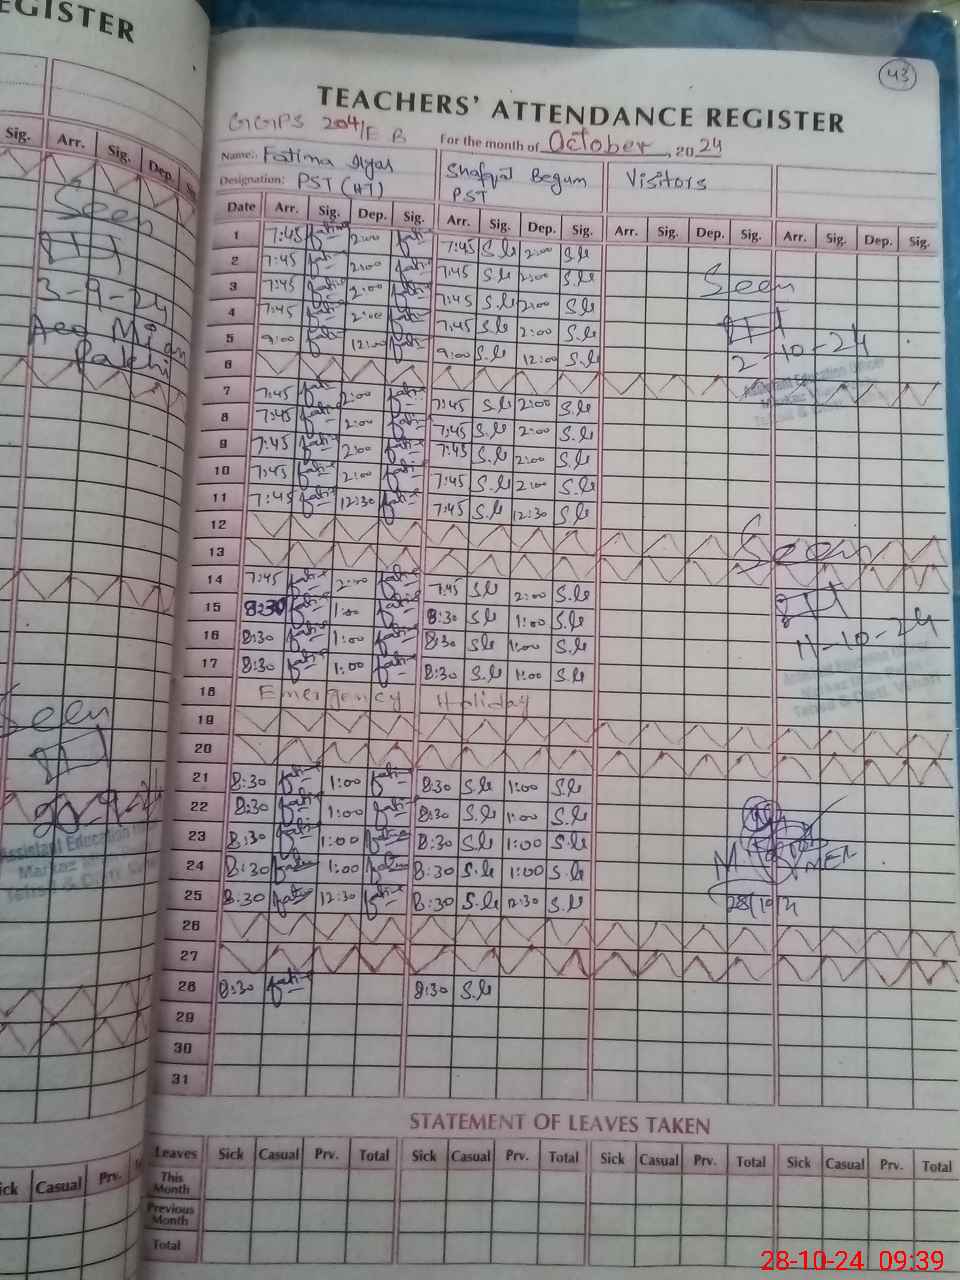 EGISTER
Sig. Arr. Sig. Dep.
Seen
3-9-24
Aeo Mian
Pakhi
Seen
Assistant Education
Markaz
Sick Casual Prv.
43
TEACHERS' ATTENDANCE REGISTER
GGPS 204/E B For the month of October, 2024
Name: Fatima Ilyas Shafqat Begum Visitors
Designation: PST (HT) PST
Date Arr. Sig. Dep. Sig. Arr. Sig. Dep. Sig. Arr. Sig. Dep. Sig. Arr. Sig. Dep. Sig.
1 7:45 2:00 7:45 S.b 2:00 S.b
2 7:45 2:00 7:45 S.b 2:00 S.b
3 7:45 2:00 7:45 S.b 2:00 S.b Seen
4 7:45 2:00 7:45 S.b 2:00 S.b
5 9:00 12:00 9:00 S.b 12:00 S.b 2-10-24
6
Assistant Education Officer
7 7:45 2:00 7:45 S.b 2:00 S.b
8 7:45 2:00 7:45 S.b 2:00 S.b
9 7:45 2:00 7:45 S.b 2:00 S.b
10 7:45 2:00 7:45 S.b 2:00 S.b
11 7:45 12:30 7:45 S.b 12:30 S.b
12
13 Seen
14 7:45 2:00 7:45 S.b 2:00 S.b
15 8:30 1:00 8:30 S.b 1:00 S.b
16 8:30 1:00 8:30 S.b 1:00 S.b 11-10-24
17 8:30 1:00 8:30 S.b 1:00 S.b
18 Emergency Holiday
19
20
21 8:30 1:00 8:30 S.b 1:00 S.b
22 8:30 1:00 8:30 S.b 1:00 S.b
23 8:30 1:00 8:30 S.b 1:00 S.b
24 8:30 1:00 8:30 S.b 1:00 S.b
25 8:30 12:30 8:30 S.b 12:30 S.b
26
27
28 8:30 8:30 S.b
29
30
31
STATEMENT OF LEAVES TAKEN
Leaves Sick Casual Prv. Total Sick Casual Prv. Total Sick Casual Prv. Total Sick Casual Prv. Total
This
Month
Previous
Month
Total
28-10-24 09:39